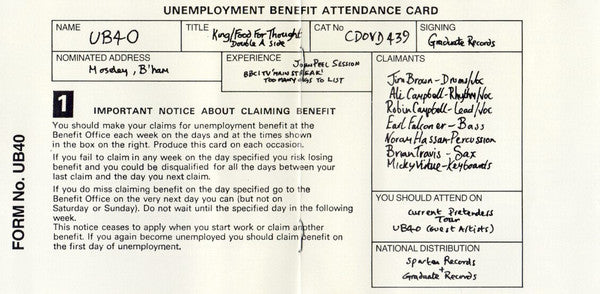 UNEMPLOYMENT BENEFIT ATTENDANCE CARD
NAME
UB40
TITLE
King/Food For Thought
Double A side
CAT No
CDOVD 439
SIGNING
Graduate Records
NOMINATED ADDRESS
Moseley, B'ham
EXPERIENCE
John Peel Session
BBC1 TV 'MAINSTREAK!'
TOO MANY GIGS TO LIST
CLAIMANTS
Jim Brown - Drums/Voc
Ali Campbell - Rhythm/Voc
Robin Campbell - Lead/Voc
Earl Falconer - Bass
Noram Hassan - Percussion
Brian Travis - Sax
Micky Virtue - Keyboards
1
IMPORTANT NOTICE ABOUT CLAIMING BENEFIT
You should make your claims for unemployment benefit at the
Benefit Office each week on the days and at the times shown
in the box on the right. Produce this card on each occasion.
If you fail to claim in any week on the day specified you risk losing
benefit and you could be disqualified for all the days between your
last claim and the day you next claim.
If you do miss claiming benefit on the day specified go to the
Benefit Office on the very next day you can (but not on
Saturday or Sunday). Do not wait until the specified day in the following
week.
This notice ceases to apply when you start work or claim another
benefit. If you again become unemployed you should claim benefit on
the first day of unemployment.
FORM No. UB40
YOU SHOULD ATTEND ON
Current Pretenders
Tour
UB40 (Guest Artists)
NATIONAL DISTRIBUTION
Spartan Records
+
Graduate Records